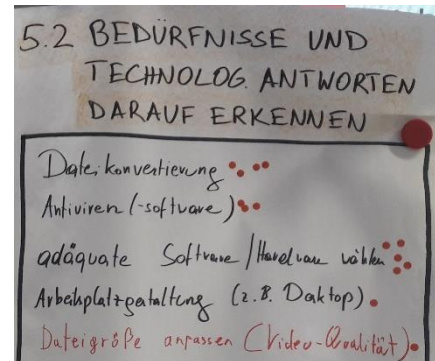 5.2 BEDÜRFNISSE UND
TECHNOLOG. ANTWORTEN
DARAUF ERKENNEN
Dateikonvertierung
Antiviren (-software)
adäquate Software/Hardware wählen
Arbeitsplatzgestaltung (z.B. Daktop)
Dateigröße anpassen (Video-Qualität)